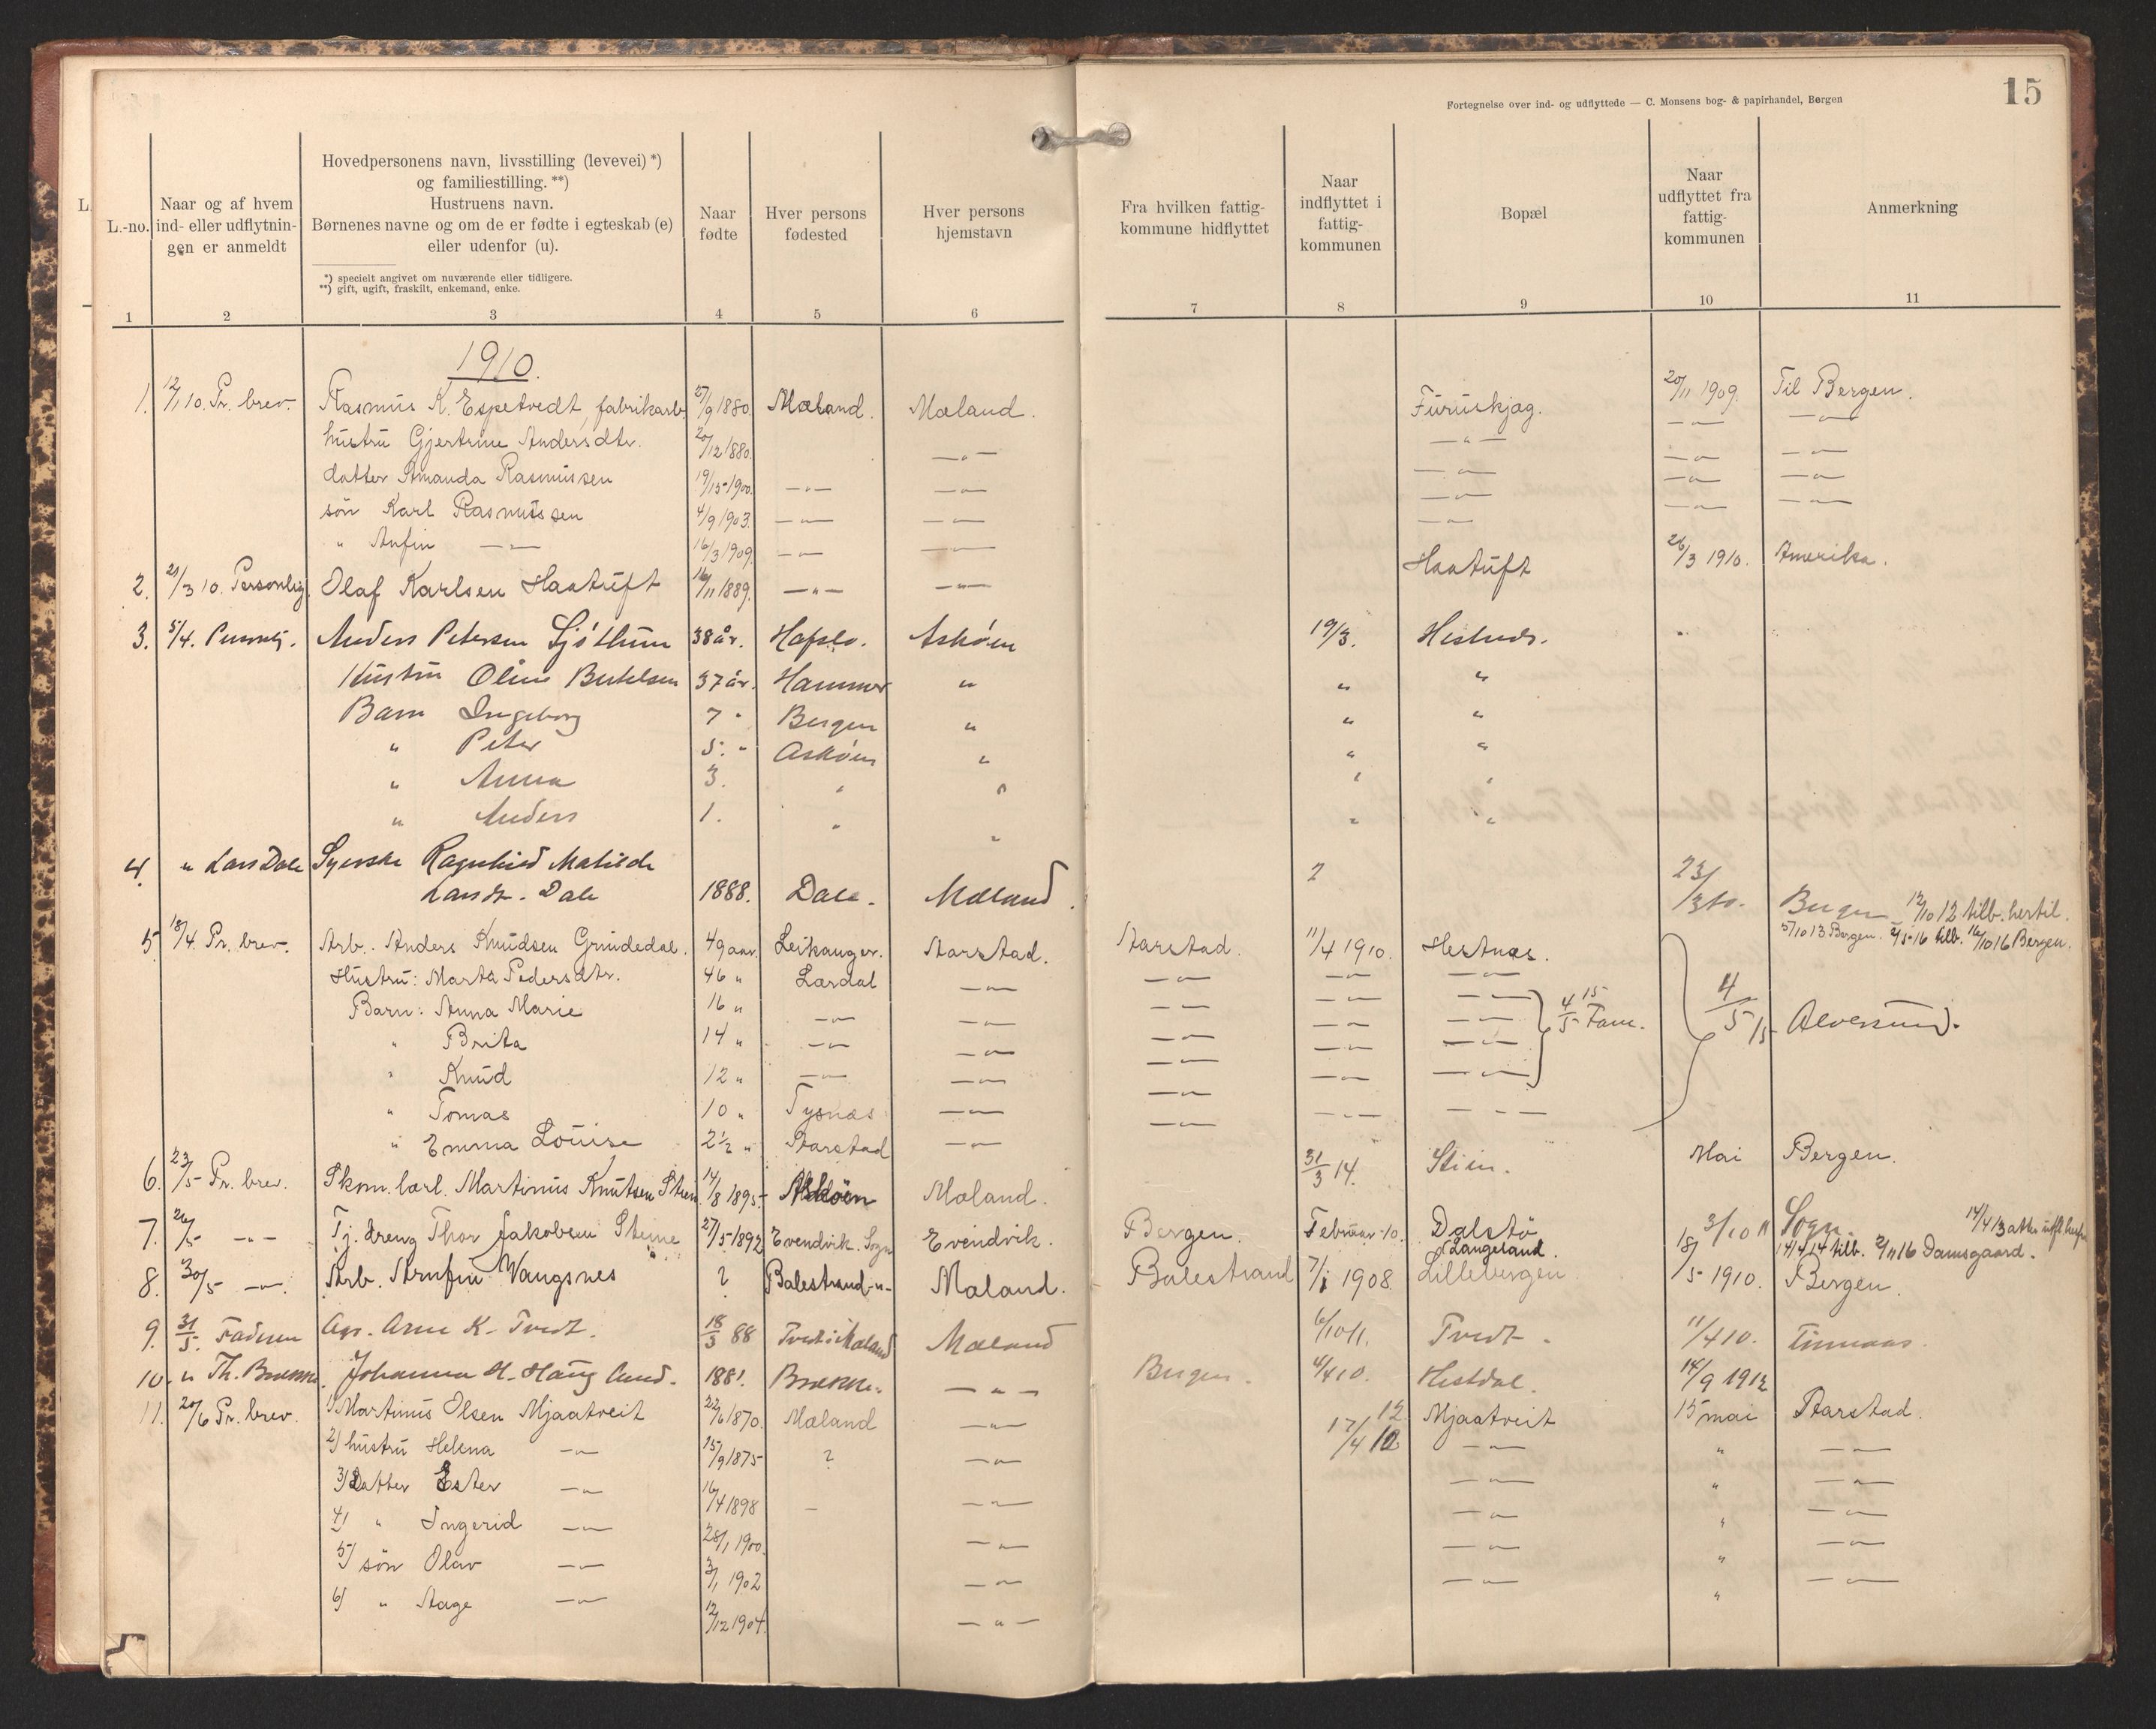 15
Fortegnelse over ind- og udflyttede — C. Monsens bog- & papirhandel, Bergen
L.
L.-no.
Naar og af hvem
ind- eller udflytnin-
gen er anmeldt
Hovedpersonens navn, livsstilling (levevei) *)
og familiestilling. **)
Hustruens navn.
Børnenes navne og om de er fødte i egteskab (e)
eller udenfor (u).
*) specielt angivet om nuværende eller tidligere.
**) gift, ugift, fraskilt, enkemand, enke.
Naar
fødte
Hver persons
fødested
Hver persons
hjemstavn
Fra hvilken fattig-
kommune hidflyttet
Naar
indflyttet i
fattig-
kommunen
Bopæl
Naar
udflyttet fra
fattig-
kommunen
Anmerkning
1 2 3 4 5 6 7 8 9 10 11
1910.
1. 12/1 10. Pr. brev. Rasmus K. Espetvedt, fabrikarb 27/9 1880. Mæland. Mæland. Furuskjæg. 20/11 1909. Til Bergen.
hustru Gjertrine Andersdtr. 20/12 1880. —"— —"— —"— —"—
datter Amanda Rasmussen 19/15 1900. —"— —"— —"— —"— —"—
søn Karl Rasmussen 4/9 1903. —"— —"— —"— —"— —"—
" Anfin —"— 16/3 1909. —"— —"— —"— —"— —"—
2. 21/3 10. Personlig. Olaf Karlsen Haatuft 16/11 1889. —"— —"— Haatuft 26/3 1910. Amerika.
3. 5/4. Anders Petersen 38 år. Hafslo. Askøen 19/3.
Hustru Oline Bertelsen 37 år. Hammer " " "
Barn Ingeborg 7 " Bergen " " "
" Peter 5. " Askøen " " "
" Anna 3. " " " "
" Anders 1. " " " "
4. " Lars Dale Syerske Ragnhild Matilde
Larsdt. Dale 1888. Dale. Mæland. ? 23/3 10. Bergen 12/10 12 tilb. hertil.
5/10 13 Bergen. 2/5-16 tilb. 16/10 16 Bergen.
5. 18/4. Pr. brev. Arb. Anders Knudsen Grindedal. 49 aar. Leikanger. Aarstad. Aarstad. 11/4 1910. Hestnæs.
Hustru: Marta Pedersdtr. 46 " Lærdal —"— —"— —"— —"—
Barn: Anna Marie 16 " —"— —"— —"— —"— —"— 4/5 15 Fam. 4/5 15 Alversund.
" Brita 14 " —"— —"— —"— —"— —"—
" Knud 12 " —"— —"— —"— —"— —"—
" Tomas 10 " Tysnæs —"— —"— —"— —"—
" Emma Louise 2½ " Aarstad —"— —"— —"— —"—
6. 23/5 Pr. brev. Skom. lærl. Martinus Knutsen Stien 14/8 1895. Askøen Mæland. 31/3 14. Stien. Mai Bergen.
7. 26/5 —"— Tj. dreng Thor Jakobsen Steine 27/5 1892 Evendvik. Sogn Evendvik. Bergen. Februar -10. Dalstø 3/10 11 Sogn.
Langeland. 14/4 14 tilb. 2/11 16 Damsgaard.
8. 30/5 —"—. Arb. Arnfin Vangsnes ? Balestrand —"— Mæland. Balestrand 7/1 1908. Lillebergen 18/5 1910. Bergen.
9. 31/5. Faderen Agr. Arne K. Tvedt. 18/3 88 Tvedt i Mæland Mæland 6/10 11. Tvedt. 11/4 10.
10. " Th. Brække. Johanna H. Haug 1881. Brække. —"— Bergen. 4/4 10. Hestdal. 14/9 1912
11. 20/6 Pr. brev. 1) Martinus Olsen Mjaatveit 22/6 1870. Mæland —"— 12 Mjaatveit 15 mai Aarstad.
17/4 12
2) hustru Helena —"— 15/9 1875 ? —"— —"— " —"—
3) Datter Ester —"— 16/4 1898 — —"— —"— " —"—
4) " Ingerid —"— 28/1 1900. —"— —"— " —"—
5) søn Olav —"— 3/1 1902 —"— —"— " —"—
6) " Aage —"— 12/12 1904. —"— —"— " —"—